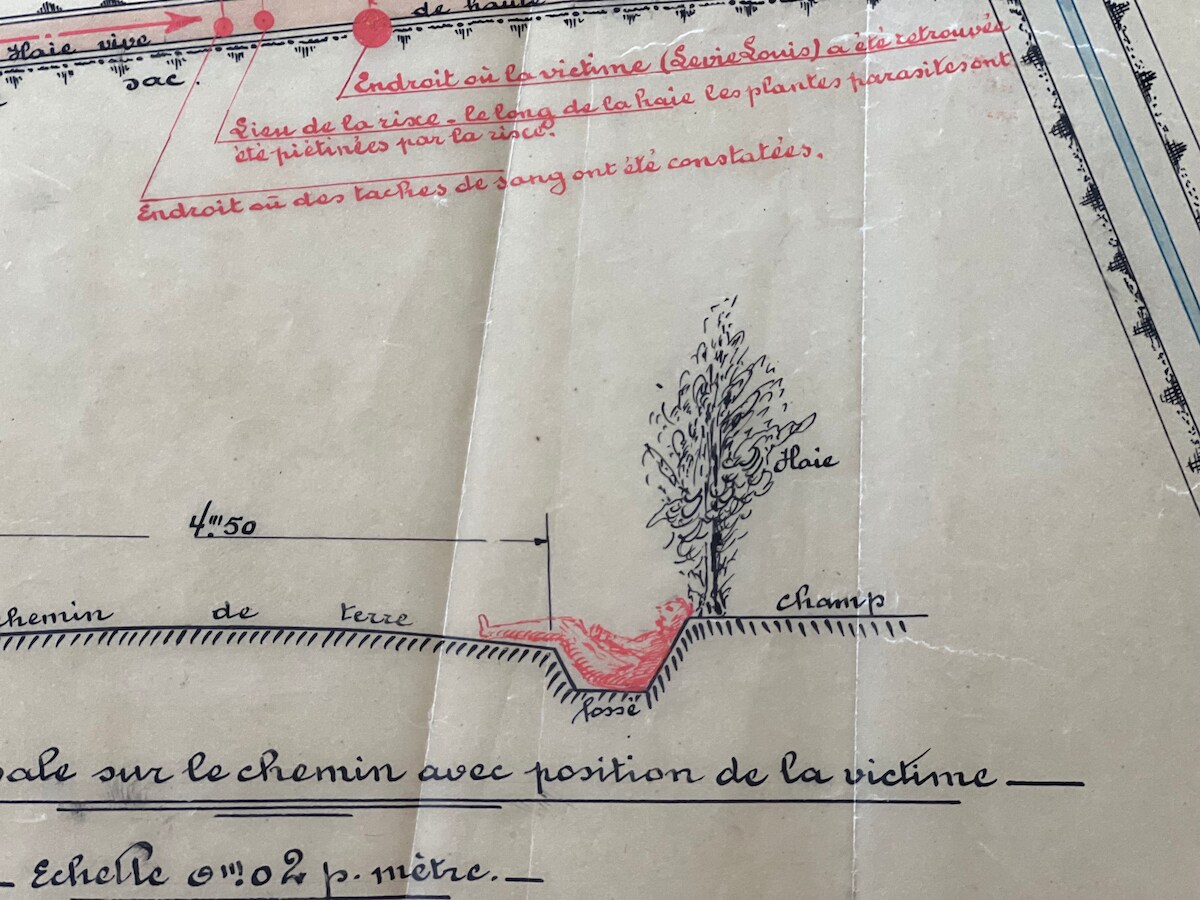 de haut
Haie vive
sac.
Endroit où la victime (Levie Louis) a été retrouvée
Lieu de la rixe - le long de la haie les plantes parasites ont
été piétinées par la rixe.
Endroit où des taches de sang ont été constatées.
Haie
4m50
chemin de terre
champ
fossé
sale sur le chemin avec position de la victime
Echelle 0m02 p. mètre.